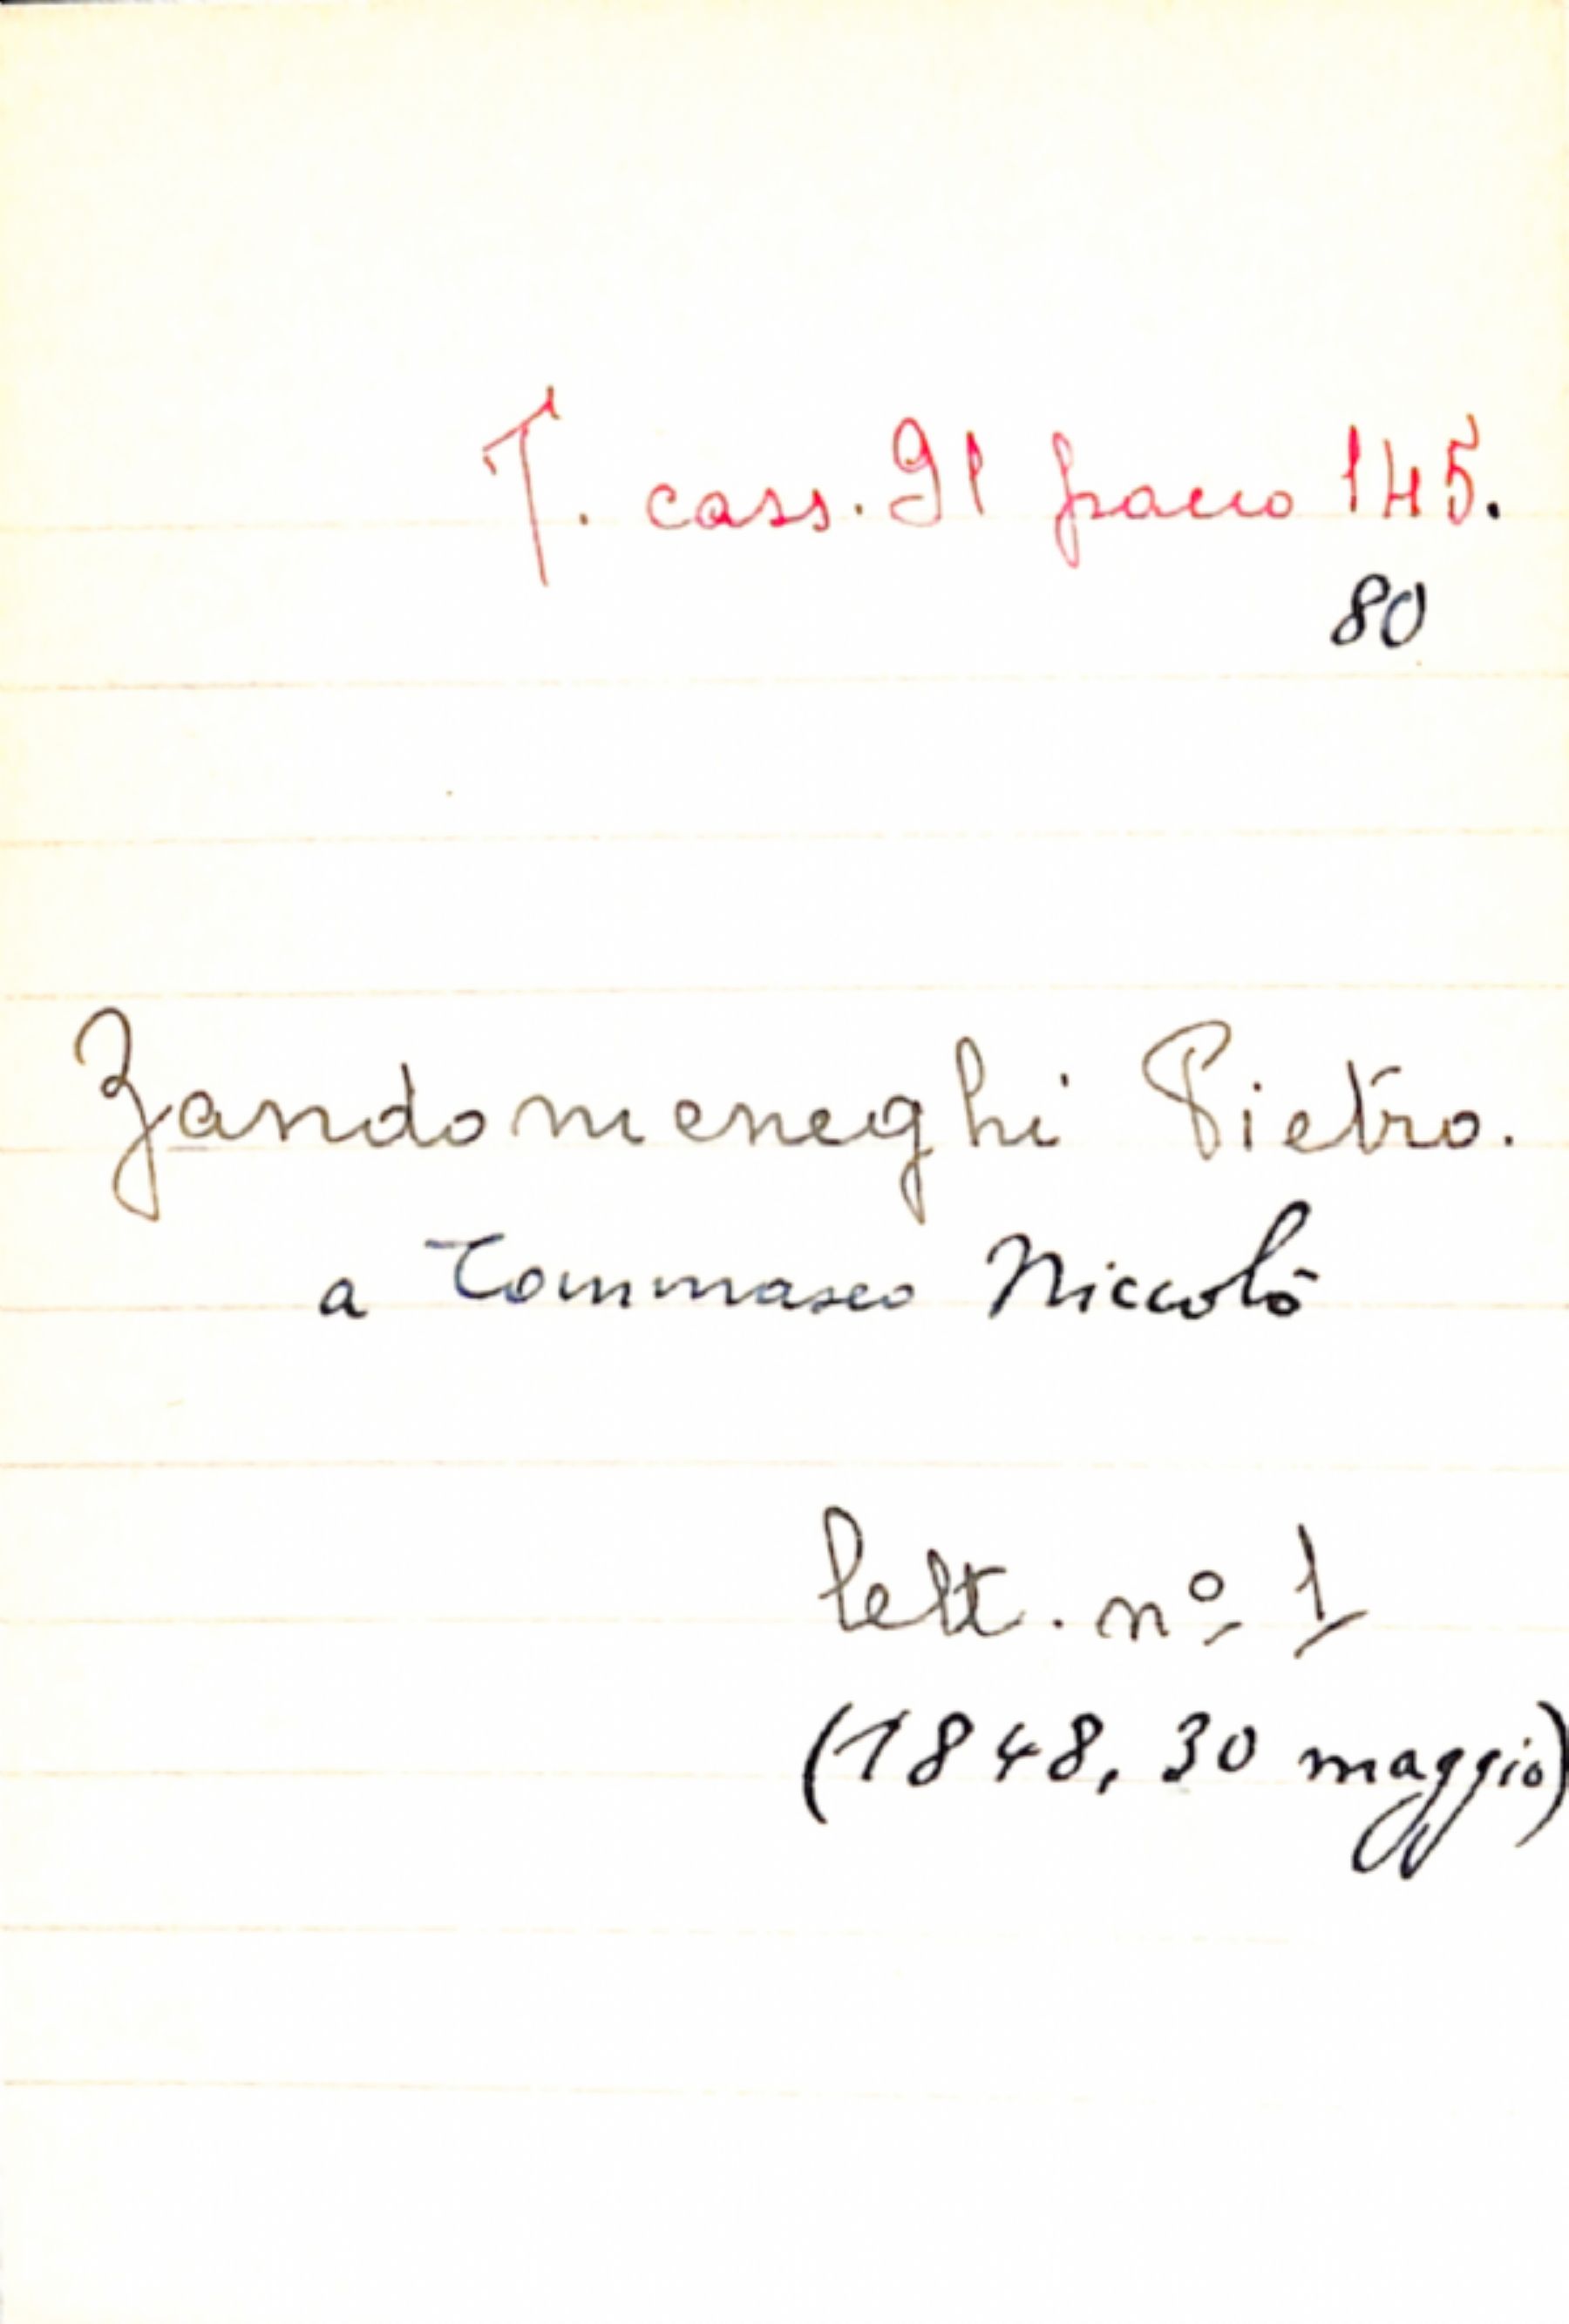 T. cass. 91 pacco 145.
80
Zandomeneghi Pietro.
a Tommaseo Niccolò
lett. nº 1
(1848, 30 maggio)